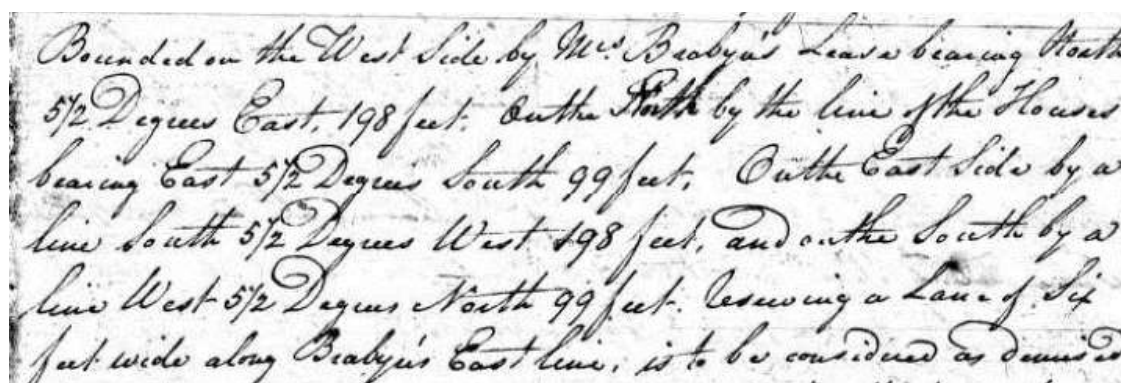 Bounded on the West Side by Mrs. Beabyn's Lease bearing North
5 1/2 Degrees East, 198 feet. On the North by the line of the Houses
bearing East 5 1/2 Degrees South 99 feet, On the East Side by a
line South 5 1/2 Degrees West 198 feet, and on the South by a
line West 5 1/2 Degrees North 99 feet. Reserving a Lane of Six
feet wide along Beabyn's East line, is to be considered as demised